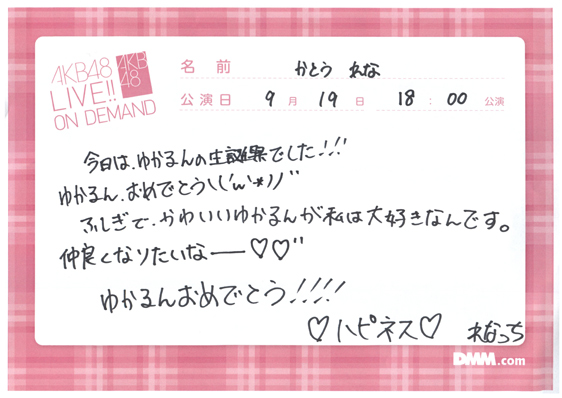 AKB48
LIVE!!
ON DEMAND
AKB
48
名前 かとう れな
公演日 9月19日 18:00 公演
今日は、ゆかるんの生誕祭でした!!!
ゆかるん、おめでとう\(('ω'*))/"
ふしぎで、かわいいゆかるんが私は大好きなんです。
仲良くなりたいなー♡♡"
ゆかるんおめでとう!!!!
♡ハピネス♡ れなっち
DMM.com